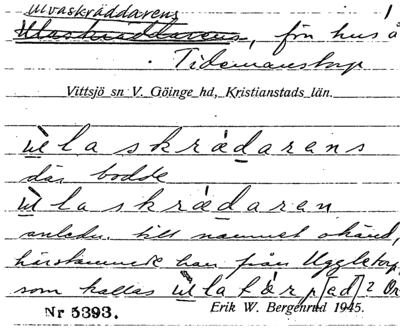 Ulvaskräddarens
Ulaskräddarens, förr hus å
Tidemanstorp
Vittsjö sn V. Göinge hd, Kristianstads län.
ùlaskrädarens
där bodde
ùlaskrädaren
anledn. till namnet okänd,
härstammade han från Uggletorp,
som kallas ùlatårp
Nr 5393.
Erik W. Bergenrud 1945.